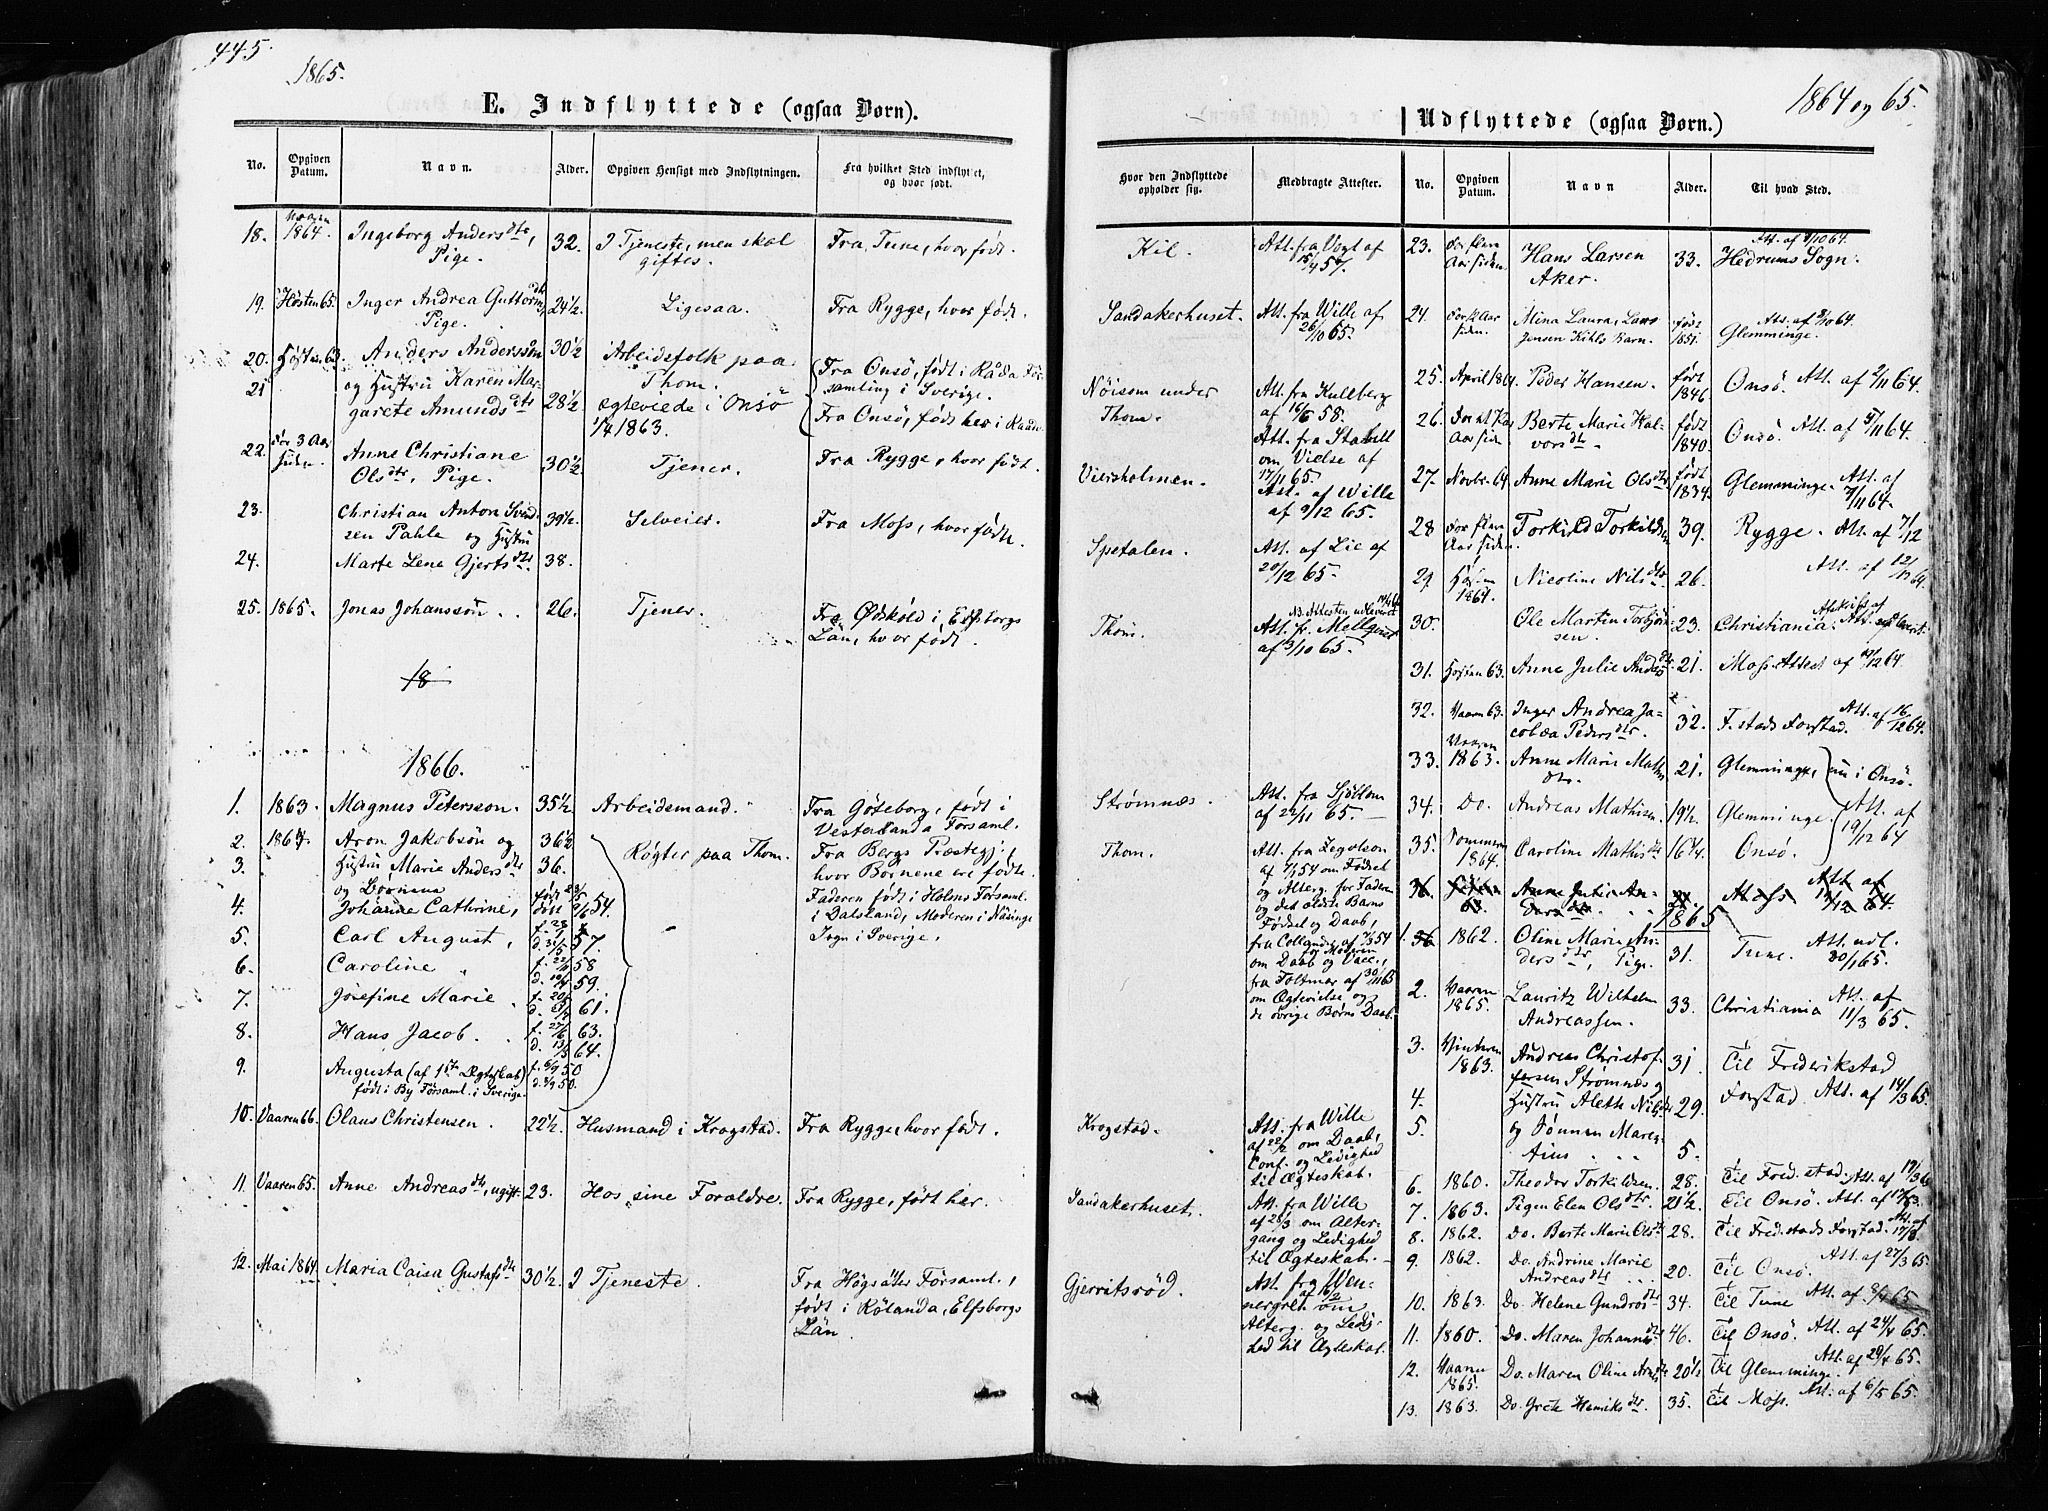 445.
1865.
E. Indflyttede (ogsaa Børn).
No. Opgiven Datum. Navn. Alder. Opgiven Hensigt med Indflytningen. Fra hvilket Sted indflyttet, og hvor født.
18. Vaaren 1864. Ingeborg Andersdtr, Pige. 32. I Tjeneste, men skal giftes. Fra Tune, hvor født.
19. Høsten 65. Inger Andrea Guttormsdtr, Pige. 24½ Ligesaa. Fra Rygge, hvor født.
20. Høsten 63. Anders Andersson 30½ Arbeidsfolk paa Thom. Fra Onsö, født i Råda Församling i Sverige.
21 og Hustru Karen Margarete Amundsdtr 28½ ægteviede i Onsö 1/4 1863. Fra Onsö, født her i Raade
22. For 3 Aar siden. Anne Christiane Olsdtr, Pige. 30½ Tjener. Fra Rygge, hvor født.
23. Christian Anton Svendsen Pahle og Hustru 39½. Selveier. Fra Moss, hvor fødte.
24. Marte Lene Gjertsdtr. 38.
25. 1865. Jonas Johansson. 26. Tjener. Fra Ødskøld i Elfsborgs Län, hvor født.
18
1866.
1. 1863. Magnus Petersson. 35½ Arbeidsmand. Fra Göteborg, født i Vesterlanda Församl.
2. 1864. Aron Jakobsön og 36½ Røgter paa Thom. Fra Bergs Præstegj., hvor Børnene ere fødte.
3. Hustru Marie Andersdtr 36. Faderen født i Holms Församl. i Dalsland, Moderen i Näsinge Sogn i Sverige.
og Børnene
4. Johanne Cathrine, født 54.
5. Carl August, 57.
6. Caroline 58
7. Josefine Marie 59. 61.
8. Hans Jacob. 63. 64.
9. Augusta (af 1ste Ægteskab) f. 6/9 50 født i By Församl. i Sverige. d. 8/9 50.
10. Vaaren 66. Olaus Christensen. 22½. Husmand i Krogstad. Fra Rygge, hvor født.
11. Vaaren 65. Anne Andreasdtr, ugift. 23. Hos sine Forældre. Fra Rygge, født her.
12. Mai 1864. Maria Caisa Gustafsdtr 30½ I Tjeneste. Fra Högsäters Församl., født i Rölanda, Elfsborgs Län.
1864 og 65.
Udflyttede (ogsaa Børn.)
Hvor den Indflyttede opholder sig. Medbragte Attester. No. Opgiven Datum. Navn Alder. Til hvad Sted.
Kil. Att. fra Vogt af 15/4 57.
Sandakerhuset. Att. fra Wille af 26/10 65.
Nöisom under Thom. Att. fra Kullberg af 16/6 58. Att. fra Stabell om Vielse af 17/11 65.
Viersholmen. Att. af Wille af 9/12 65.
Spetalen. Att. af Lie af 20/12 65.
Thom. Att. fr. Mellqvist af 3/10 65.
Strømnæs. Att. fra Sjöblom af 22/11 65.
Thom. Att. fra af 7/1 54 om Fødsel og Alterg. for Faderen og det ældste Barns Fødsel og Daab, fra af 7/3 54 om Moderens Daab og Vacc., fra Foltmar af 30/11 65 om Ægtevielse og de øvrige Børns Daab.
Krogstad. Att. fra Wille af 22/2 om Daab, Conf. og Ledighed til Ægteskab.
Sandakerhuset. Att. fra Wille af 28/3 om Altergang og Ledighed til Ægteskab.
Gjerritsröd. Att. fra Wennergren af 16/2 om Alterg. og Ledighed til Ægteskab.
23. For flere Aar siden. Hans Larsen Aker. 33. Hedrums Sogn. Att. af 9/10 64.
24. For 1 Aar siden. Mina Laura, Lars Jensen Kihls Barn. født 1851. Glemminge. Att. af 9/10 64.
25. April 1864. Peder Hansen. født 1846. Onsö. Att. af 2/11 64.
26. Berte Marie Halvorsdtr. født 1840. Onsö. Att. af 5/11 64.
27. Novbr. 64. Anne Marie Olsdtr født 1834. Glemminge. Att. af 7/11 64.
28 For flere Aar siden. Torkild Torkildsen 39. Rygge. Att. af 7/12
29. Høsten 1864. Nicoline Nilsdtr 26. Att. af 12/12 64.
30. Ole Martin Torbjörnsen. 23. Christiania.
31. Høsten 63. Anne Julie Andersdtr 21. Moss. Attest af 12/12 64.
32. Vaaren 63. Inger Andrea Jacobæa Pedersdtr. 32. F.stads Forstad. Att. af 16/12 64.
33. Vaaren 1863. Anne Marie Mathisdtr. 21. Glemminge, nu i Onsö.
34. Do. Andreas Mathisen. 19½. Glemminge. Att. af 19/12 64
35. Sommeren 1864. Caroline Mathisdtr 16¼. Onsö.
36. Høsten 63. Anne Julie Andersdtr. 21. Moss Att. af 12/12 64.
1865
1. 36 1862. Oline Marie Andersdtr, Pige. 31. Tune. Att. udl. 30/1 65.
2. Vaaren 1865. Lauritz Wilhelm Andreassen. 33. Christiania Att. af 11/3 65.
3. Vinteren 1863. Andreas Christoffersen Strømnæs og 31 Til Fredrikstad
4. Hustru Aleth Nilsdtr 29. Forstad. Att. af 14/3 65.
5. og Sönnen Mareg- 5.
6. 1860. Theodor Torkildsen. 28. Til Fred.stad.
7. 1863. Pigen Elen Olsdtr. 21½. Til Onsö.
8. 1862. Do. Berte Marie Olsdtr 28. Til Fred.stads Forstad.
9. 1862. Do. Andrine Marie Andreasdtr 20. Til Onsö. Att. af 27/3 65.
10. 1863. Do. Helene Gundrosdtr 34. Til Tune Att. af 8/4 65.
11. 1860. Do. Maren Johannesdtr 46. Til Onsö. Att. af 24/4 65.
12. Vaaren 1865. Do. Maren Oline 20½ Til Glemminge. Att. af 29/4 65.
13. 1863. Do. Grete Henriksdtr. 35. Til Moss. Att. af 6/5 65.